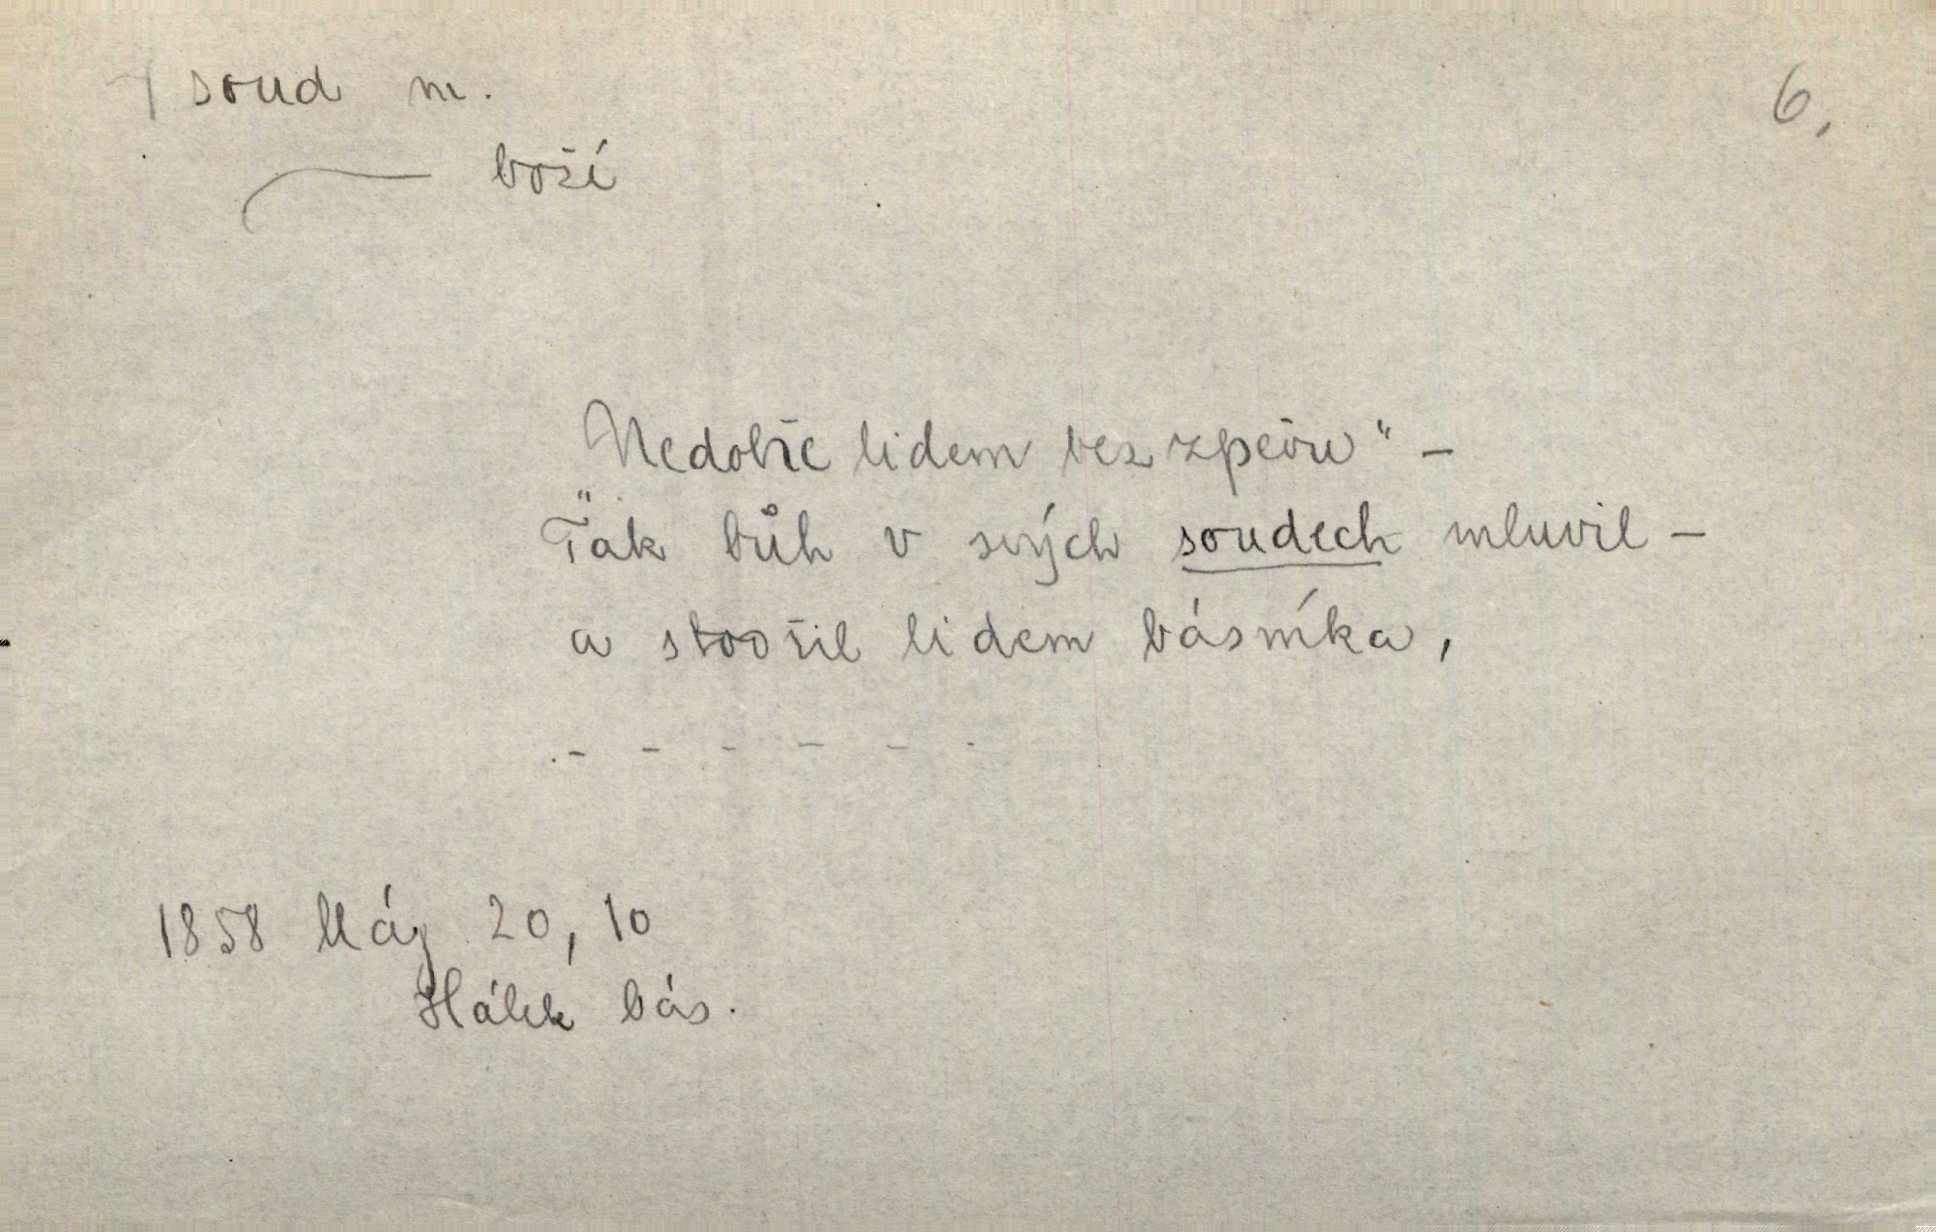 soud m.
6.
boží
„Nedobře lidem bez zpěvu“ –
Tak bůh v svých soudech mluvil –
a stvořil lidem básníka,
. – – – – – -
1858 Máj 20, 10
Hálek bás.